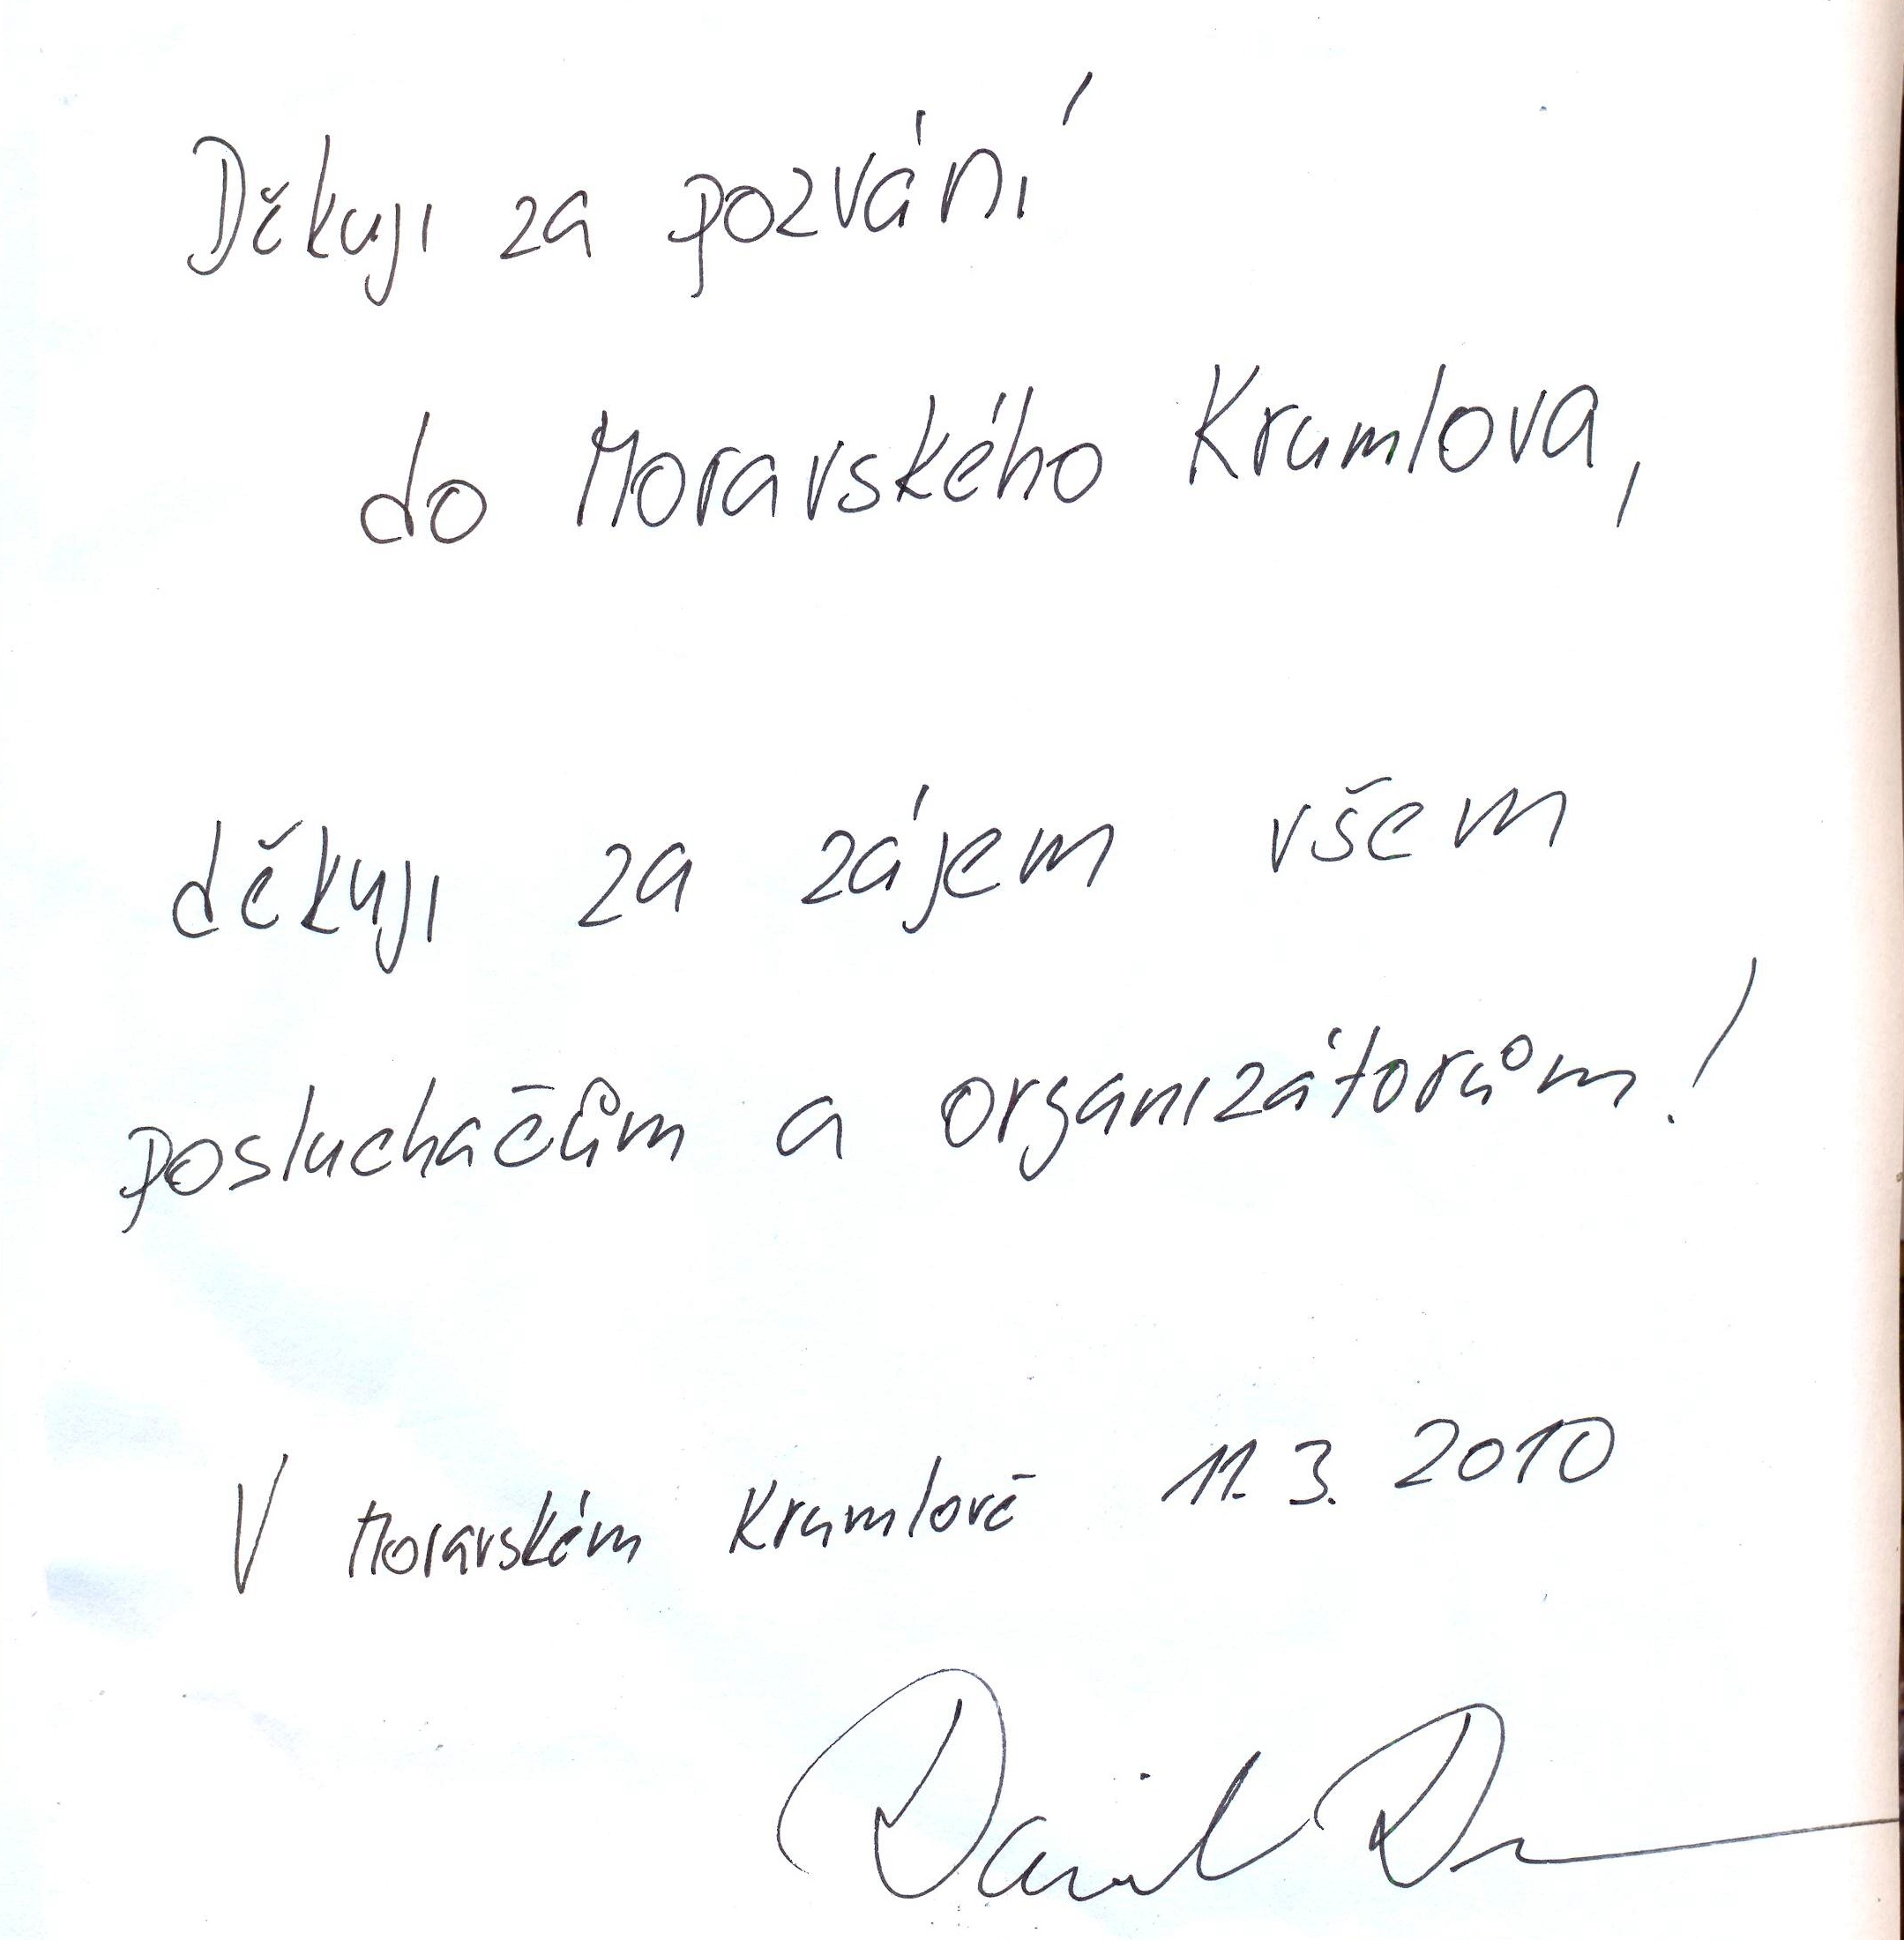 Děkuji za pozvání
do Moravského Krumlova,
děkuji za zájem všem
posluchačům a organizátorům!
V Moravském Krumlově 11. 3. 2010
Daniel